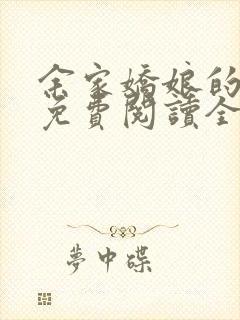 余家嬌娘的
免費閱讀全
夢中碟